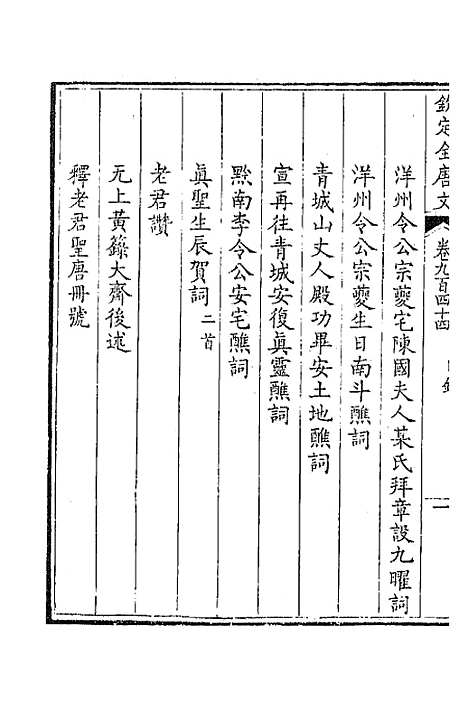 欽定全唐文 卷九百四十四 目錄 一
洋州令公宗夔宅陳國夫人某氏拜章設九曜詞
洋州令公宗夔生日南斗醮詞
青城山丈人殿功畢安土地醮詞
宣再往青城安復眞靈醮詞
黔南李令公安宅醮詞
眞聖生辰賀詞二首
老君讚
无上黃籙大齋後述
釋老君聖唐冊號